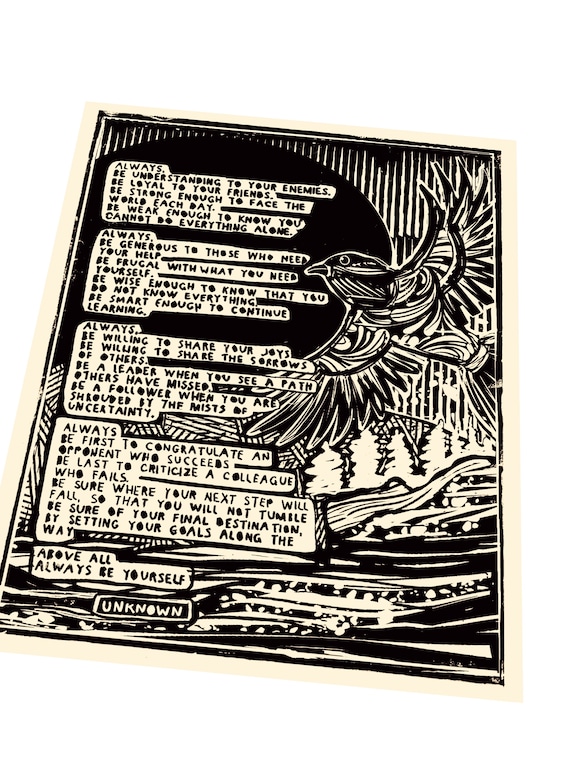 ALWAYS,
BE UNDERSTANDING TO YOUR ENEMIES.
BE LOYAL TO YOUR FRIENDS.
BE STRONG ENOUGH TO FACE THE
WORLD EACH DAY.
BE WEAK ENOUGH TO KNOW YOU
CANNOT DO EVERYTHING ALONE.
ALWAYS,
BE GENEROUS TO THOSE WHO NEED
YOUR HELP
BE FRUGAL WITH WHAT YOU NEED
YOURSELF.
BE WISE ENOUGH TO KNOW THAT YOU
DO NOT KNOW EVERYTHING
BE SMART ENOUGH TO CONTINUE
LEARNING.
ALWAYS,
BE WILLING TO SHARE YOUR JOYS
BE WILLING TO SHARE THE SORROWS
OF OTHERS
BE A LEADER WHEN YOU SEE A PATH
OTHERS HAVE MISSED.
BE A FOLLOWER WHEN YOU ARE
SHROUDED BY THE MISTS OF
UNCERTAINTY.
ALWAYS
BE FIRST TO CONGRATULATE AN
OPPONENT WHO SUCCEEDS
BE LAST TO CRITICIZE A COLLEAGUE
WHO FAILS.
BE SURE WHERE YOUR NEXT STEP WILL
FALL, SO THAT YOU WILL NOT TUMBLE
BE SURE OF YOUR FINAL DESTINATION,
BY SETTING YOUR GOALS ALONG THE
WAY
ABOVE ALL
ALWAYS BE YOURSELF
UNKNOWN